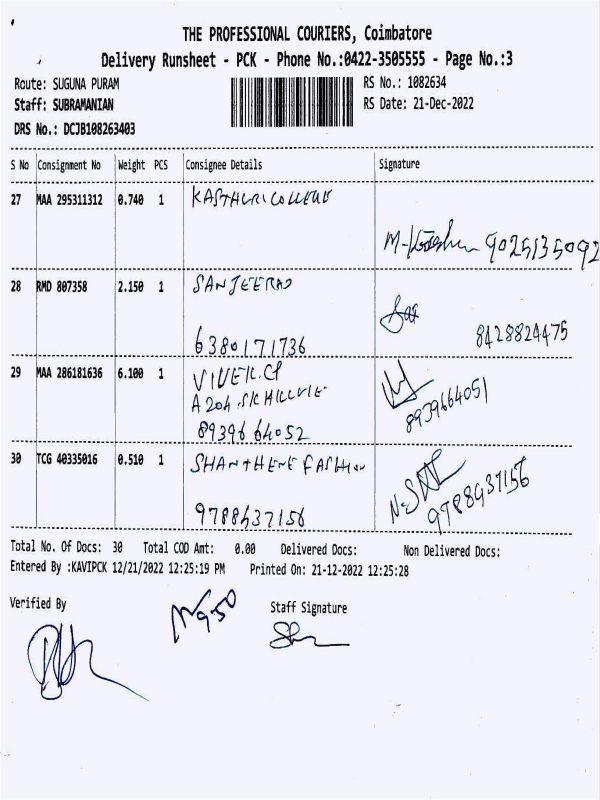 THE PROFESSIONAL COURIERS, Coimbatore
Delivery Runsheet - PCK - Phone No.:0422-3505555 - Page No.:3
Route: SUGUNA PURAM
RS No.: 1082634
Staff: SUBRAMANIAN
RS Date: 21-Dec-2022
DRS No.: DCJB108263403
S No Consignment No Weight PCS Consignee Details Signature
27 MAA 295311312 0.740 1 KASTHURI COLLEGE
9025135092
28 RMD 807358 2.150 1 SANJEERAO
6380171736 8428824475
29 MAA 286181636 6.100 1 VIVEK.CP
A204.SKHILLVIE
8939664052 8939664051
30 TCG 40335016 0.510 1 SHANTHENE FASHION
9788437156 9788437156
Total No. Of Docs: 30 Total COD Amt: 0.00 Delivered Docs: Non Delivered Docs:
Entered By :KAVIPCK 12/21/2022 12:25:19 PM Printed On: 21-12-2022 12:25:28
Verified By Staff Signature